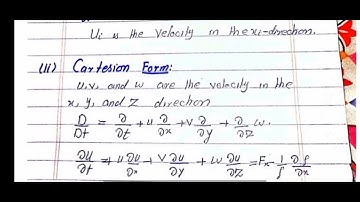 Ui is the Velocity in the xi-direction.
(ii) Cartesion Form:
u, v, and w are the velocity in the
x, y, and z direction
D/Dt = ∂/∂t + u ∂/∂x + v ∂/∂y + ∂/∂z w.
∂u/∂t + u ∂u/∂x + v ∂u/∂y + w ∂u/∂z = Fx - 1/ρ ∂ρ/∂x